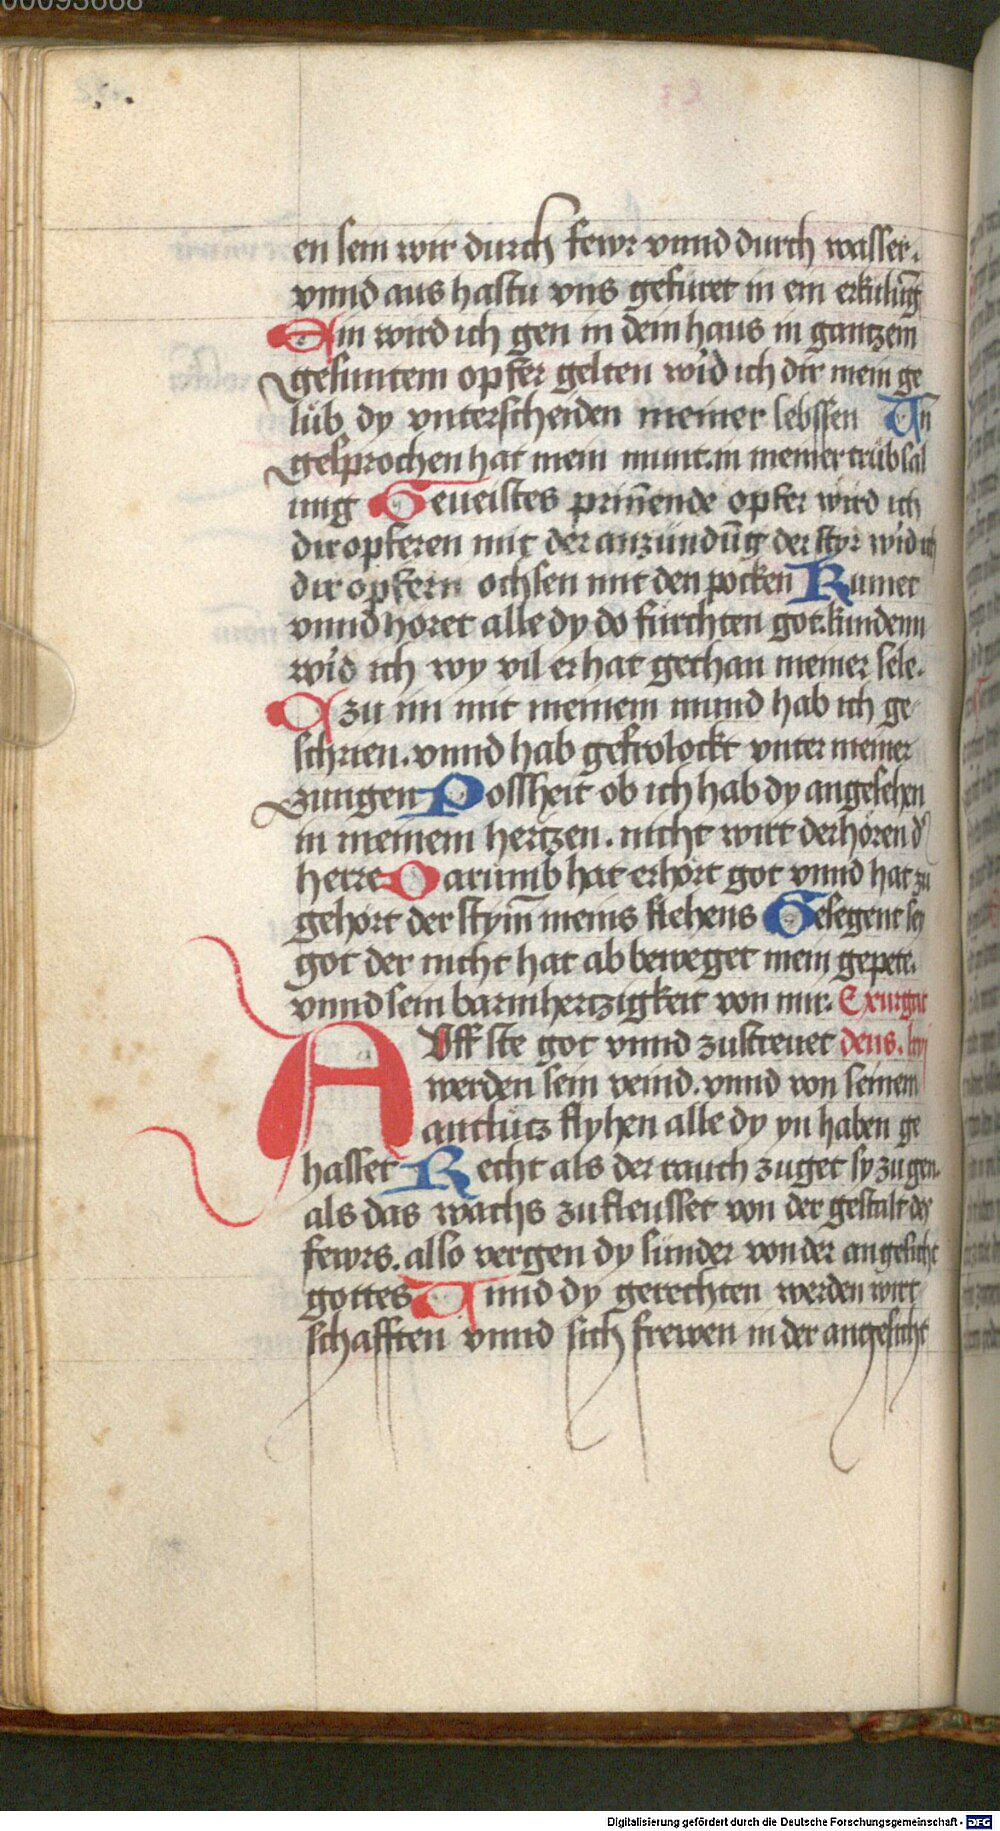 00093668
en sein wir durch fewr vnnd durch wasser.
vnnd aus hastu vns gefüret in ein erkulūg
Ein wird ich gen in dein haus in gantzem
gesuntem opfer gelten wi'd ich dir mein ge
lüb dy vnterscheiden meiner lebssen Un
gesprochen hat mein munt. in meiner trübsal
ung Geueistes prin̄ende opfer wird ich
dir opferen mit der anzündūg der styr wi'd ich
dir opfern ochsen mit den pocken Kumet
vnnd horet alle dy do fürchten got. kundenn
wi'd ich wy vil er hat gethan meiner sele.
Czu im mit meinem mund hab ich ge
schrien. vnnd hab gefrolockt vnter meiner
zungen Possheit ob ich hab dy angesehen
in meinem hertzen. nicht wirt derhören d'
herre Darumb hat erhört got vnnd hat zu
gehört der stym̄ meins flehens Gesegent sey
got der nicht hat ab beweget mein gepete.
vnnd sein barmhertzigkeit von mir. Exurgat
AUff ste got vnnd zustreuet deus. lxvj
werden sein veind. vnnd von seinem
antlütz flyhen alle dy yn haben ge
hasset Recht als der rauch zuget sy zugen.
als das wachs zufleusset von der gestalt des
fewrs. also vergen dy sünder von der angesicht
gottes Unnd dy gerechten werden wirt
schafften vnnd sich frewen in der angesicht
Digitalisierung gefördert durch die Deutsche Forschungsgemeinschaft - DFG